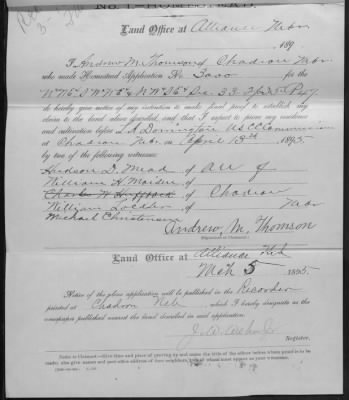 No. 1—HOMESTEAD.
Land Office at Alliance Nebr
189
I Andrew M. Thomson of Chadron Nebr
who made Homestead Application No. 3000 for the
do hereby give notice of my intention to make final proof to establish my
claim to the land above described, and that I expect to prove my residence
and cultivation before L A Dorrington US CC Commissioner
at Chadron Nebr on April 13th 1895
by two of the following witnesses:
Hudson D. Mead of all of
William H. of
Charles W. of Chadron
William of Nebr
Michael Christensen
Andrew M. Thomson
(Signature of Claimant.)
Land Office at Alliance Neb
Mch 5 1895.
Notice of the above application will be published in the Recorder
printed at Chadron Neb which I hereby designate as the
newspaper published nearest the land described in said application.
Register.
Notice to Claimant.—Give time and place of proving up and name the title of the officer before whom proof is to be
made; also give names and post office address of four neighbors, two of whom must appear as your witnesses.